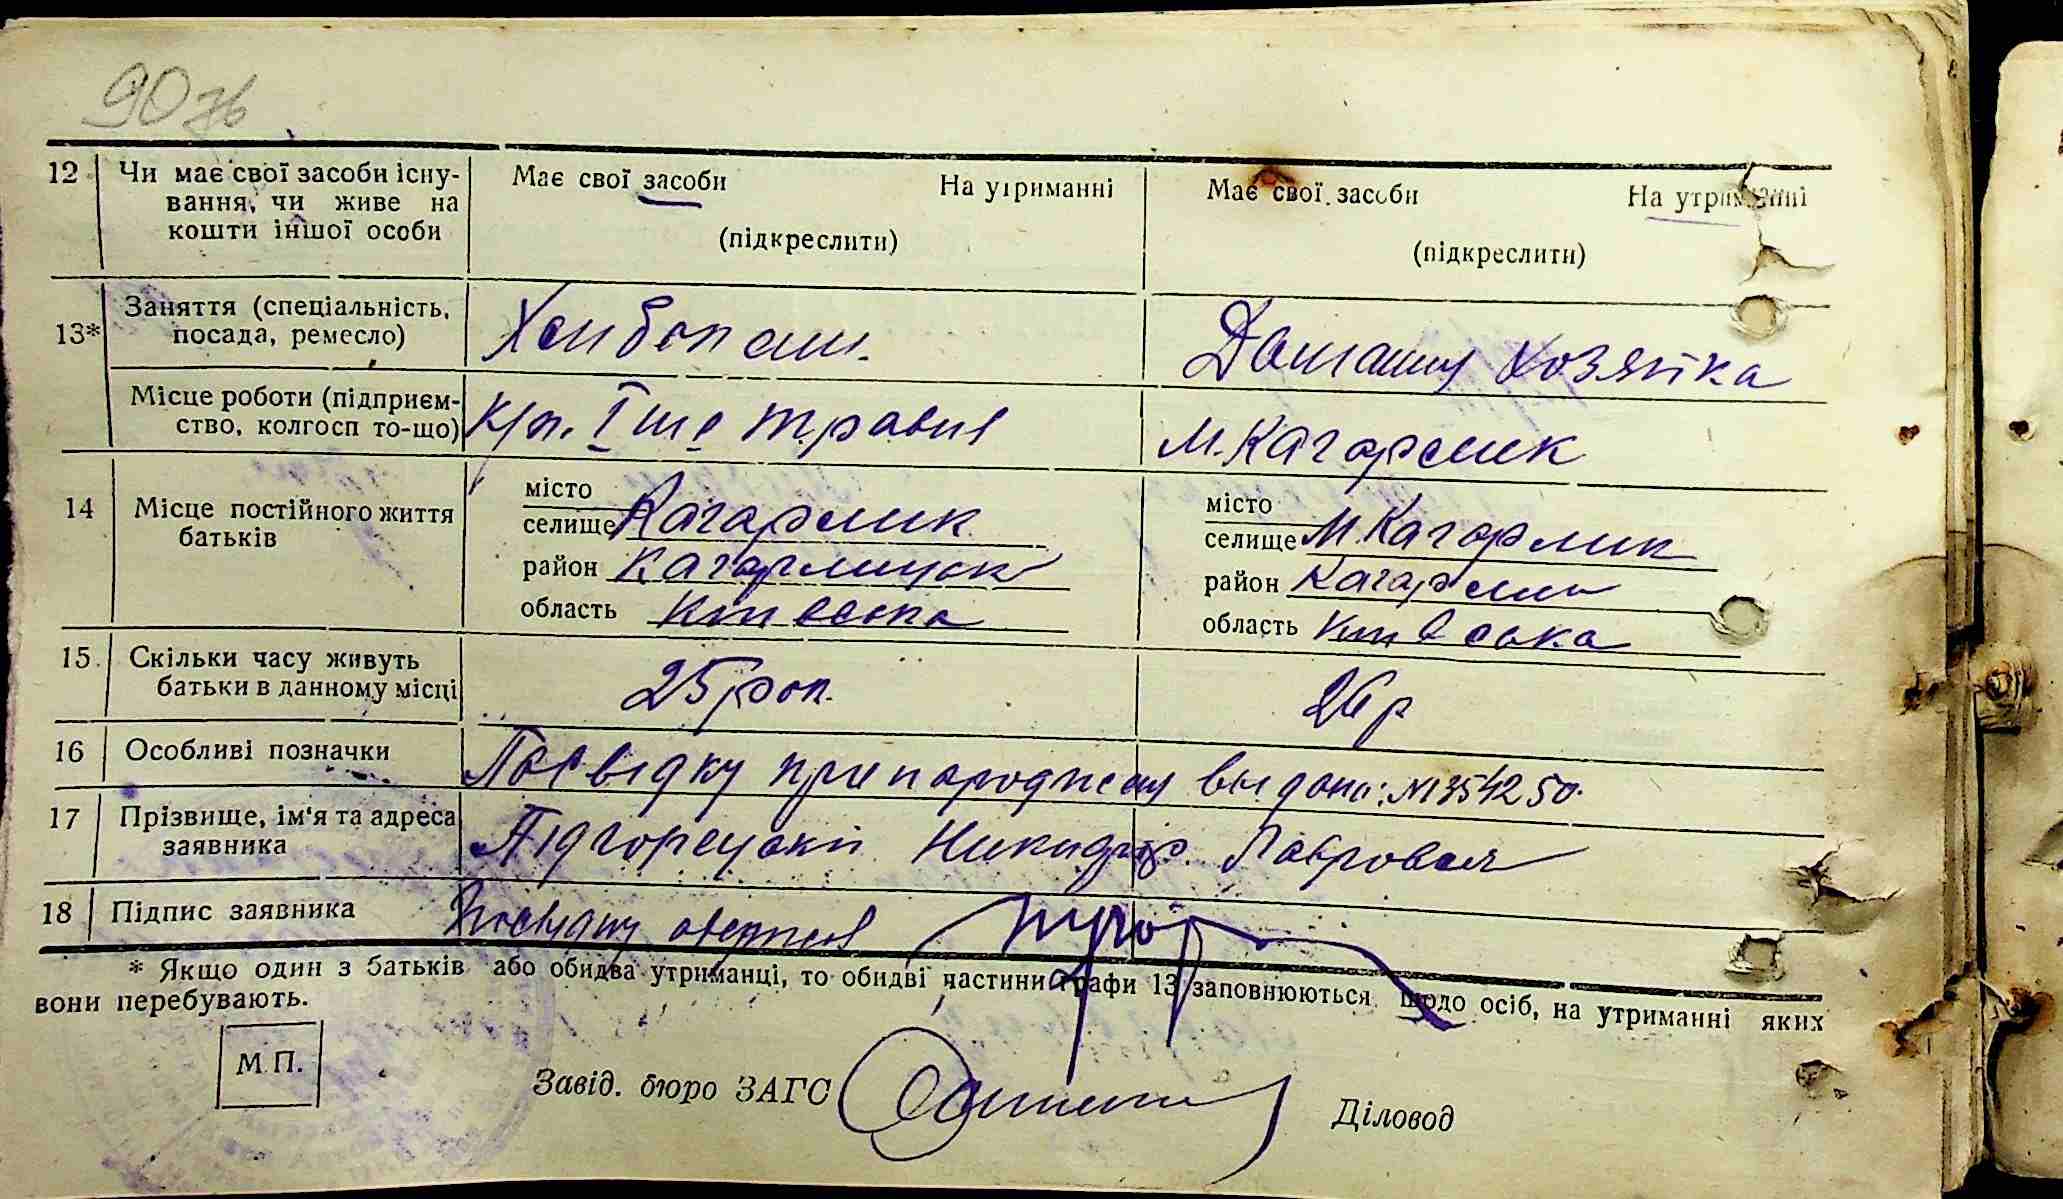 90 зв
12 Чи має свої засоби існу-
вання, чи живе на
кошти іншої особи
Має свої засоби На утриманні
(підкреслити)
Має свої засоби На утриманні
(підкреслити)
13* Заняття (спеціальність,
посада, ремесло)
Хлібопаш.
Домашня хозяйка
Місце роботи (підприєм-
ство, колгосп то-що)
І ше травня
м. Кагарлик
14 Місце постійного життя
батьків
місто
селище Кагарлик
район Кагарлицьк
область Київська
місто
селище м. Кагарлик
район Кагарли
область Київська
15 Скільки часу живуть
батьки в данному місці
25 рок.
26 р
16 Особливі позначки
Посвідку про народження видано: № 354250.
17 Прізвище, ім'я та адреса
заявника
Підгорецький Никифор
18 Підпис заявника
Посвідку
* Якщо один з батьків або обидва утриманці, то обидві частини графи 13 заповнюються щодо осіб, на утриманні яких
вони перебувають.
М. П.
Завід. бюро ЗАГС
Діловод